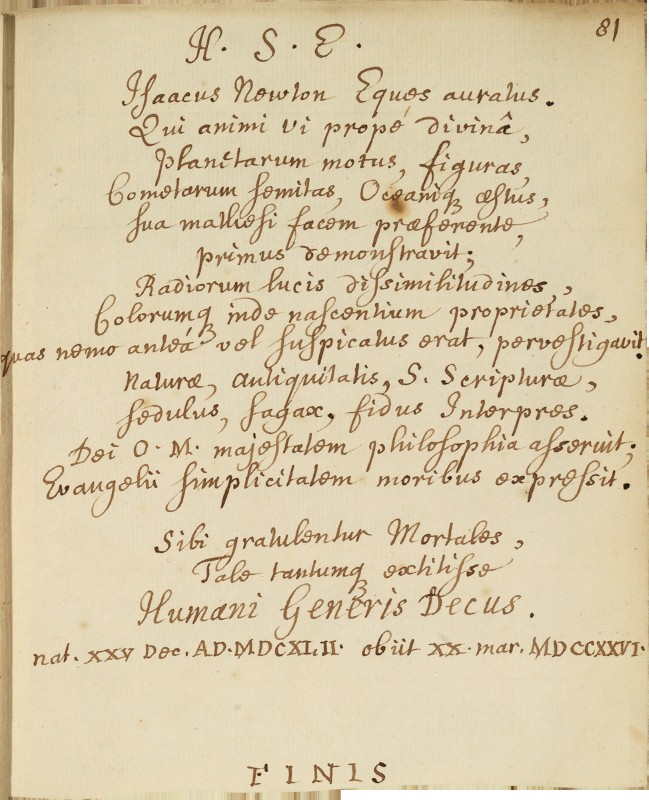 81
H. S. E.
Isaacus Newton Eques auratus.
Qui animi vi propé divinâ,
Planetarum motus, figuras,
Cometarum semitas, Oceaniq æstus,
sua mathesi facem præferente,
primus demonstravit;
Radiorum lucis dissimilitudines,
Colorumq inde nascentium proprietates,
quas nemo anteá vel suspicatus erat, pervestigavit.
Naturæ, antiquitatis, S. Scripturæ,
sedulus, sagax, fidus Interpres.
Dei O. M. majestatem philosophia asseruit;
Evangelii simplicitatem moribus expressit.
Sibi gratulentur Mortales,
Tale tantumq extitisse
Humani Generis Decus.
nat. XXV Dec. AD. MDCXLII. obiit XX. mar. MDCCXXVI.
FINIS